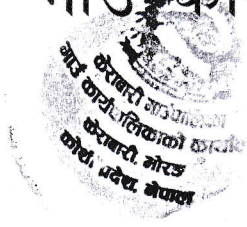 केराबारी गाउँपालिका
गाउँ कार्यपालिकाको कार्यालय
केराबारी, मोरङ
कोशी प्रदेश, नेपाल